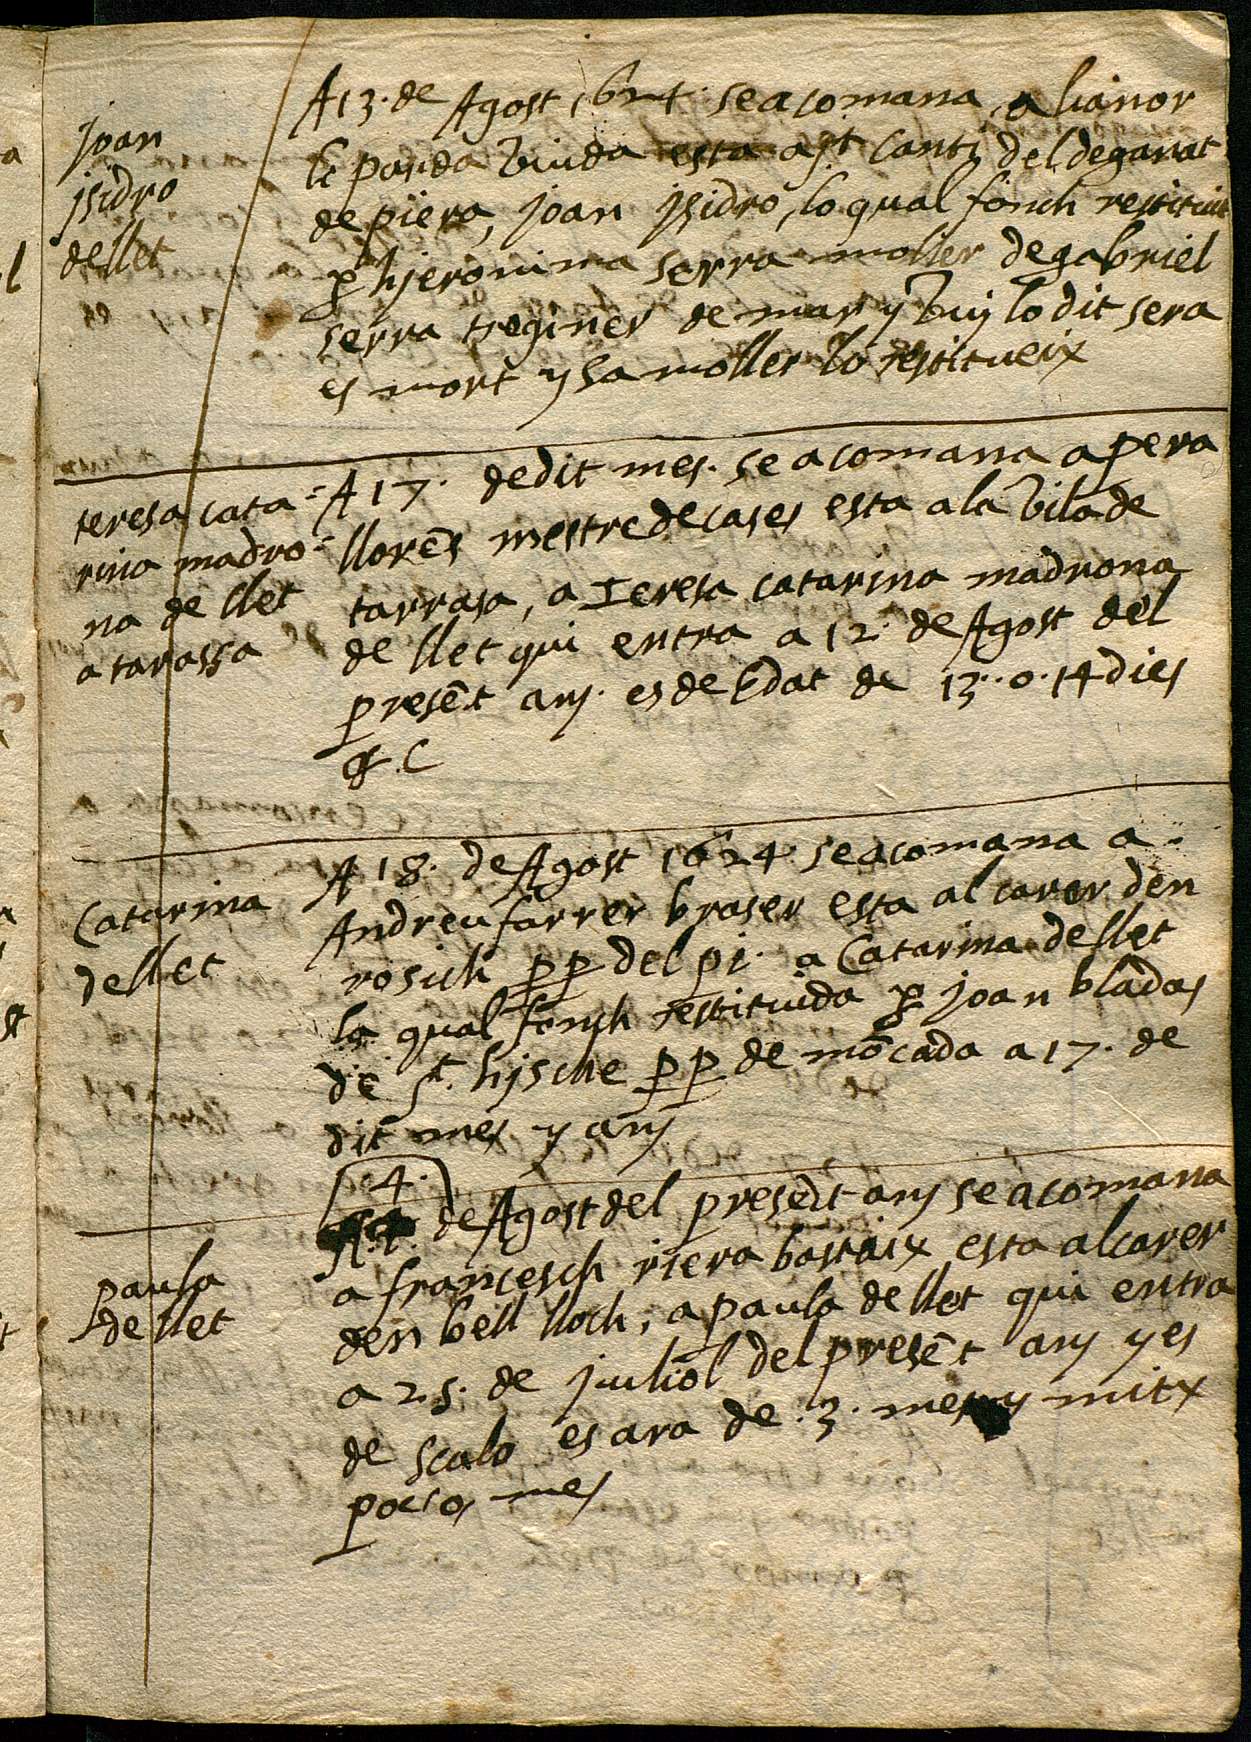 Joan
jsidro
de llet
A 13. de Agost 1624. se acomana, a lianor
panda viuda esta a st. cantj del deganat
de piera, joan jsidro, lo qual fonch restituit
p hjeronima serra moller de gabriel
serra traginer de mar y vuj lo dit sera
es mort y sa moller lo restitueix
teresa cata=
rina madro=
na de llet
a tarassa
A 17. de dit mes. se acomana a pera
llorēs mestre de cases esta a la vila de
tarrasa, a Teresa catarina madrona
de llet qui entra a 12. de Agost del
presēt anj. es de Edat de 13. o. 14 dies
&.C
Catarina
de llet
A 18. de Agost 1624. se acomana a
Andreu farrer braser esta al carer den
rosich pp del pi. a Catarina de llet
la qual fonch restituida p joan bladas
de st. hjscle pp de mōcada a 17. de
dit mes y anj
paula
de llet
4.
A de Agost del presēt anj se acomana
a francesch riera bastaix esta al carer
den bell lloch, a paula de llet qui entra
a 25. de juliol del presēt anj y es
de scalo es ara de .3. mesos y mitx
pocs mes